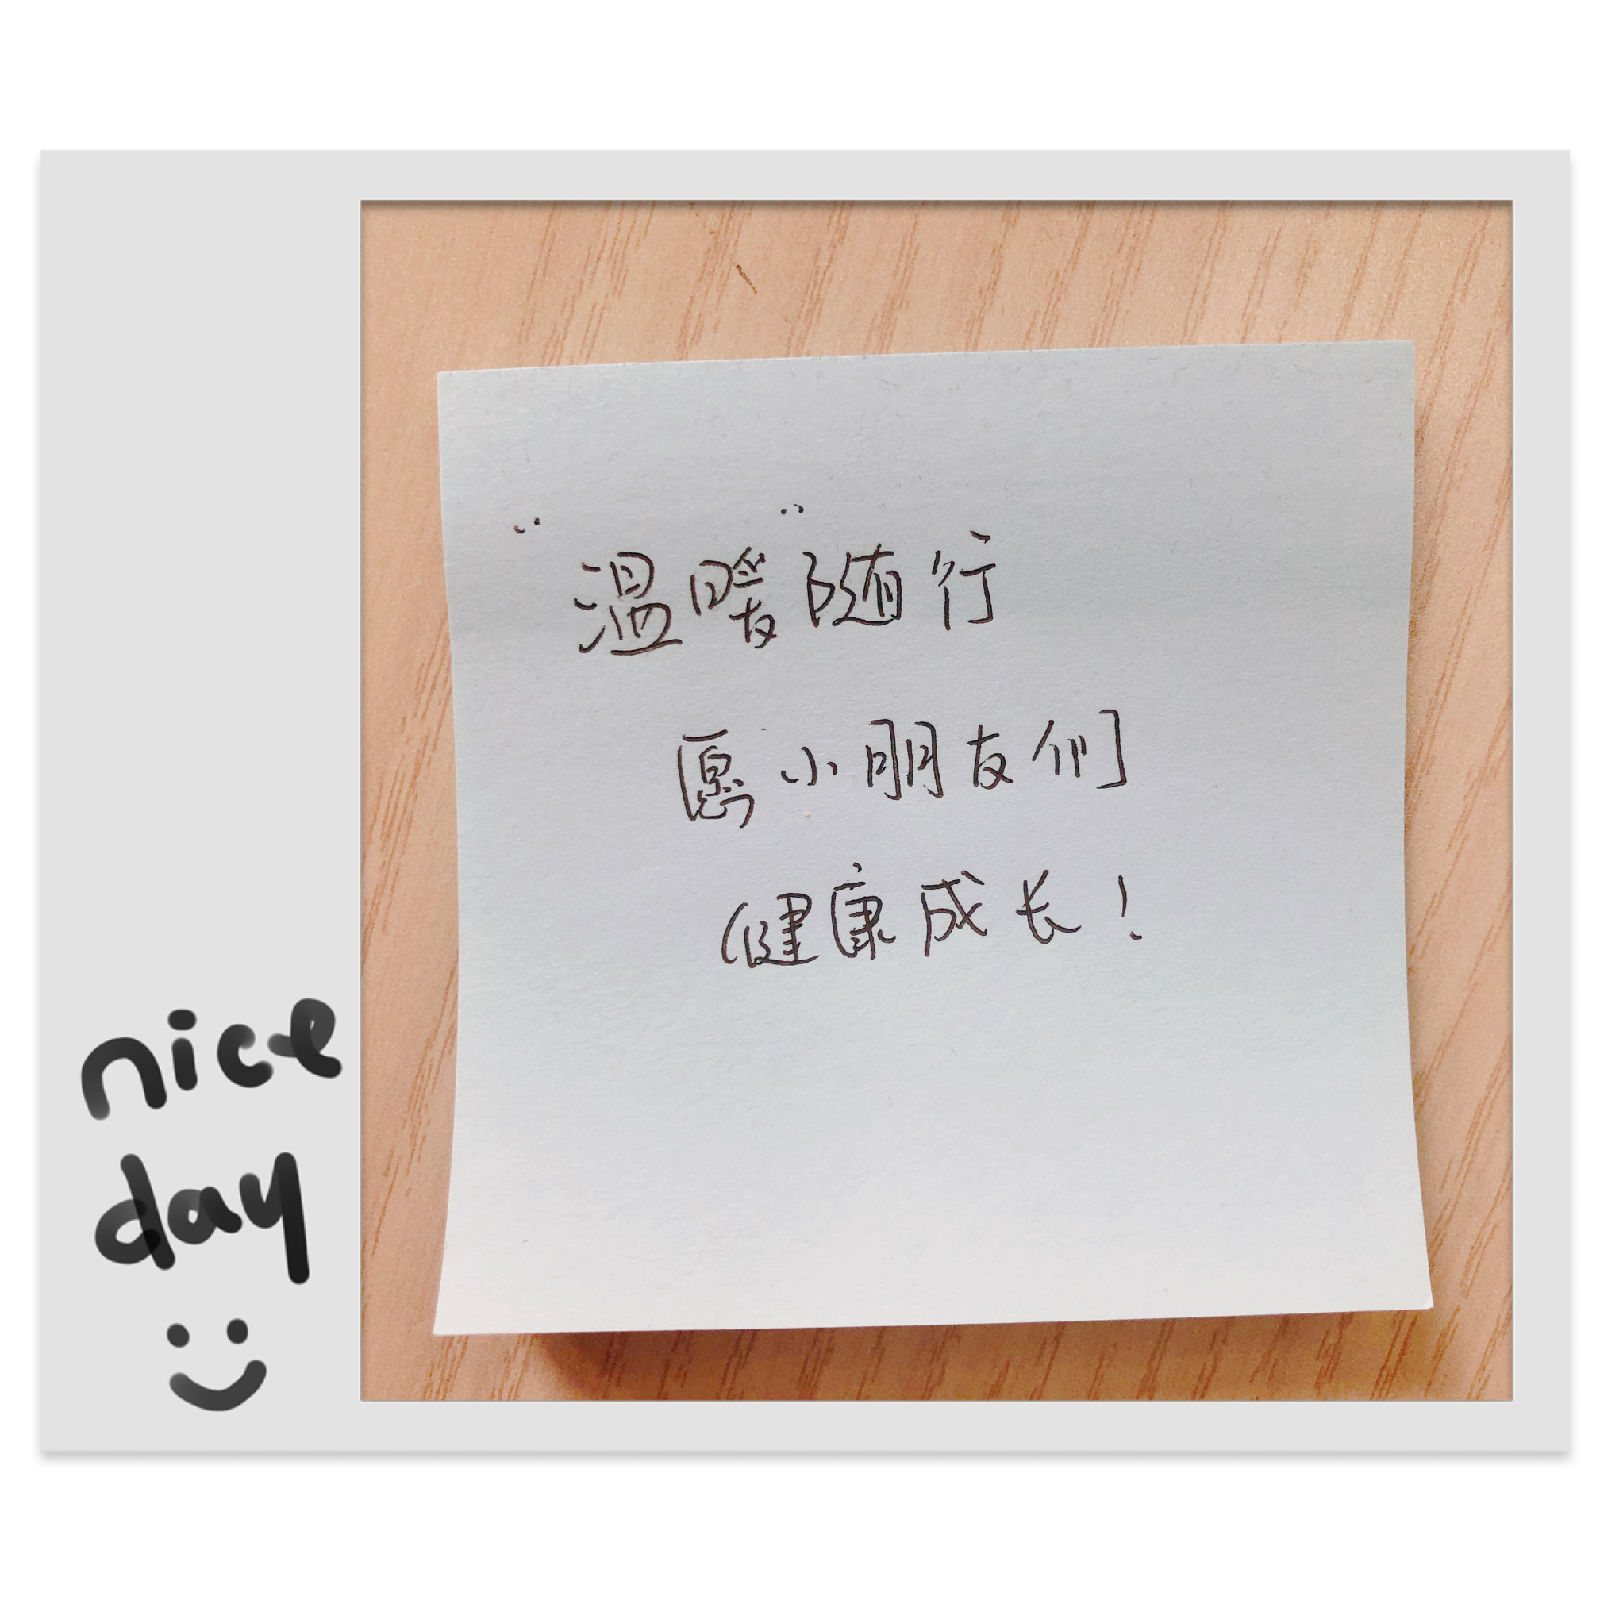 “温暖”随行
愿小朋友们
健康成长！
nice
day